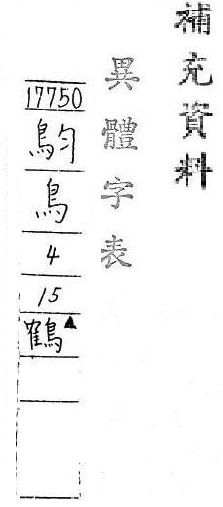 補充資料
異體字表
17750
鳥
4
15
鶴▲